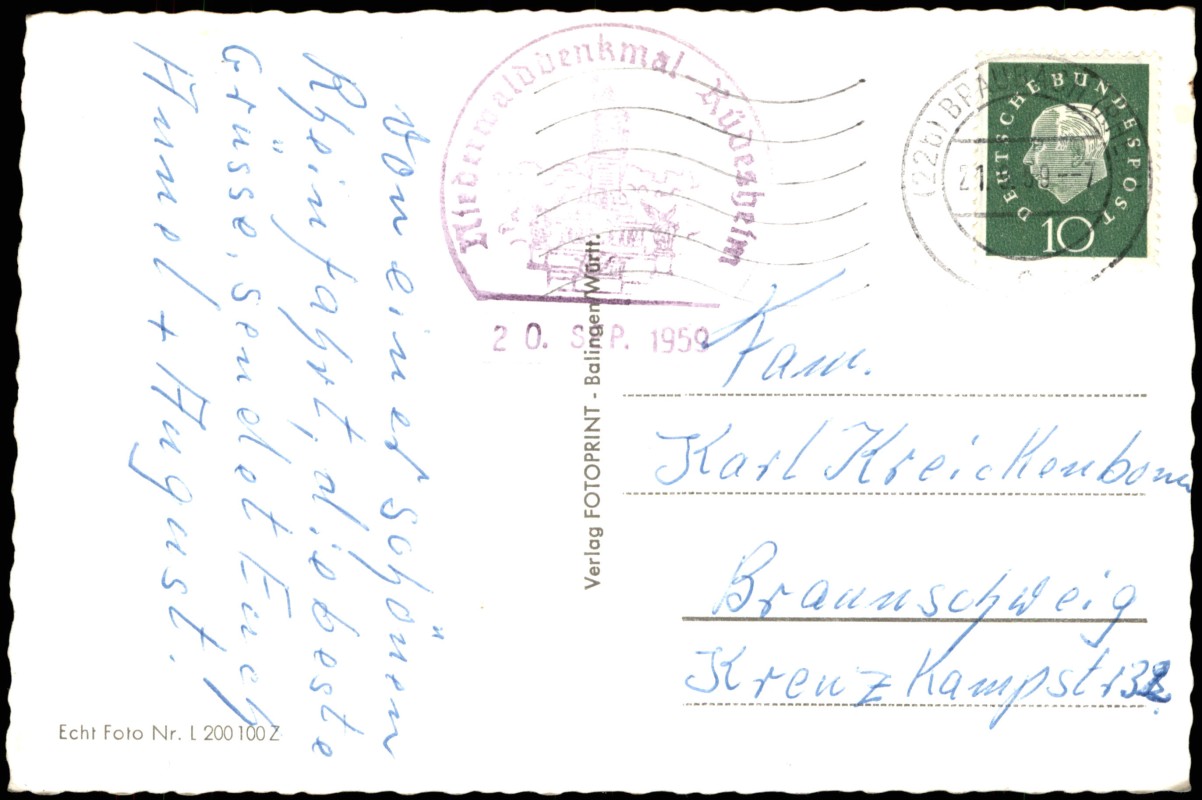 Von einer schönen
Rheinfahrt, die beste
Grüsse, sendet Euch
Ännel + August.
Niederwalddenkmal - Rüdesheim
20. SEP. 1959
DEUTSCHE BUNDESPOST
10
(22b)
Verlag FOTOPRINT - Balingen/Württ.
Fam.
Karl Kreickenbom
Braunschweig
Kreuzkampstr
Echt Foto Nr. L 200 100 Z